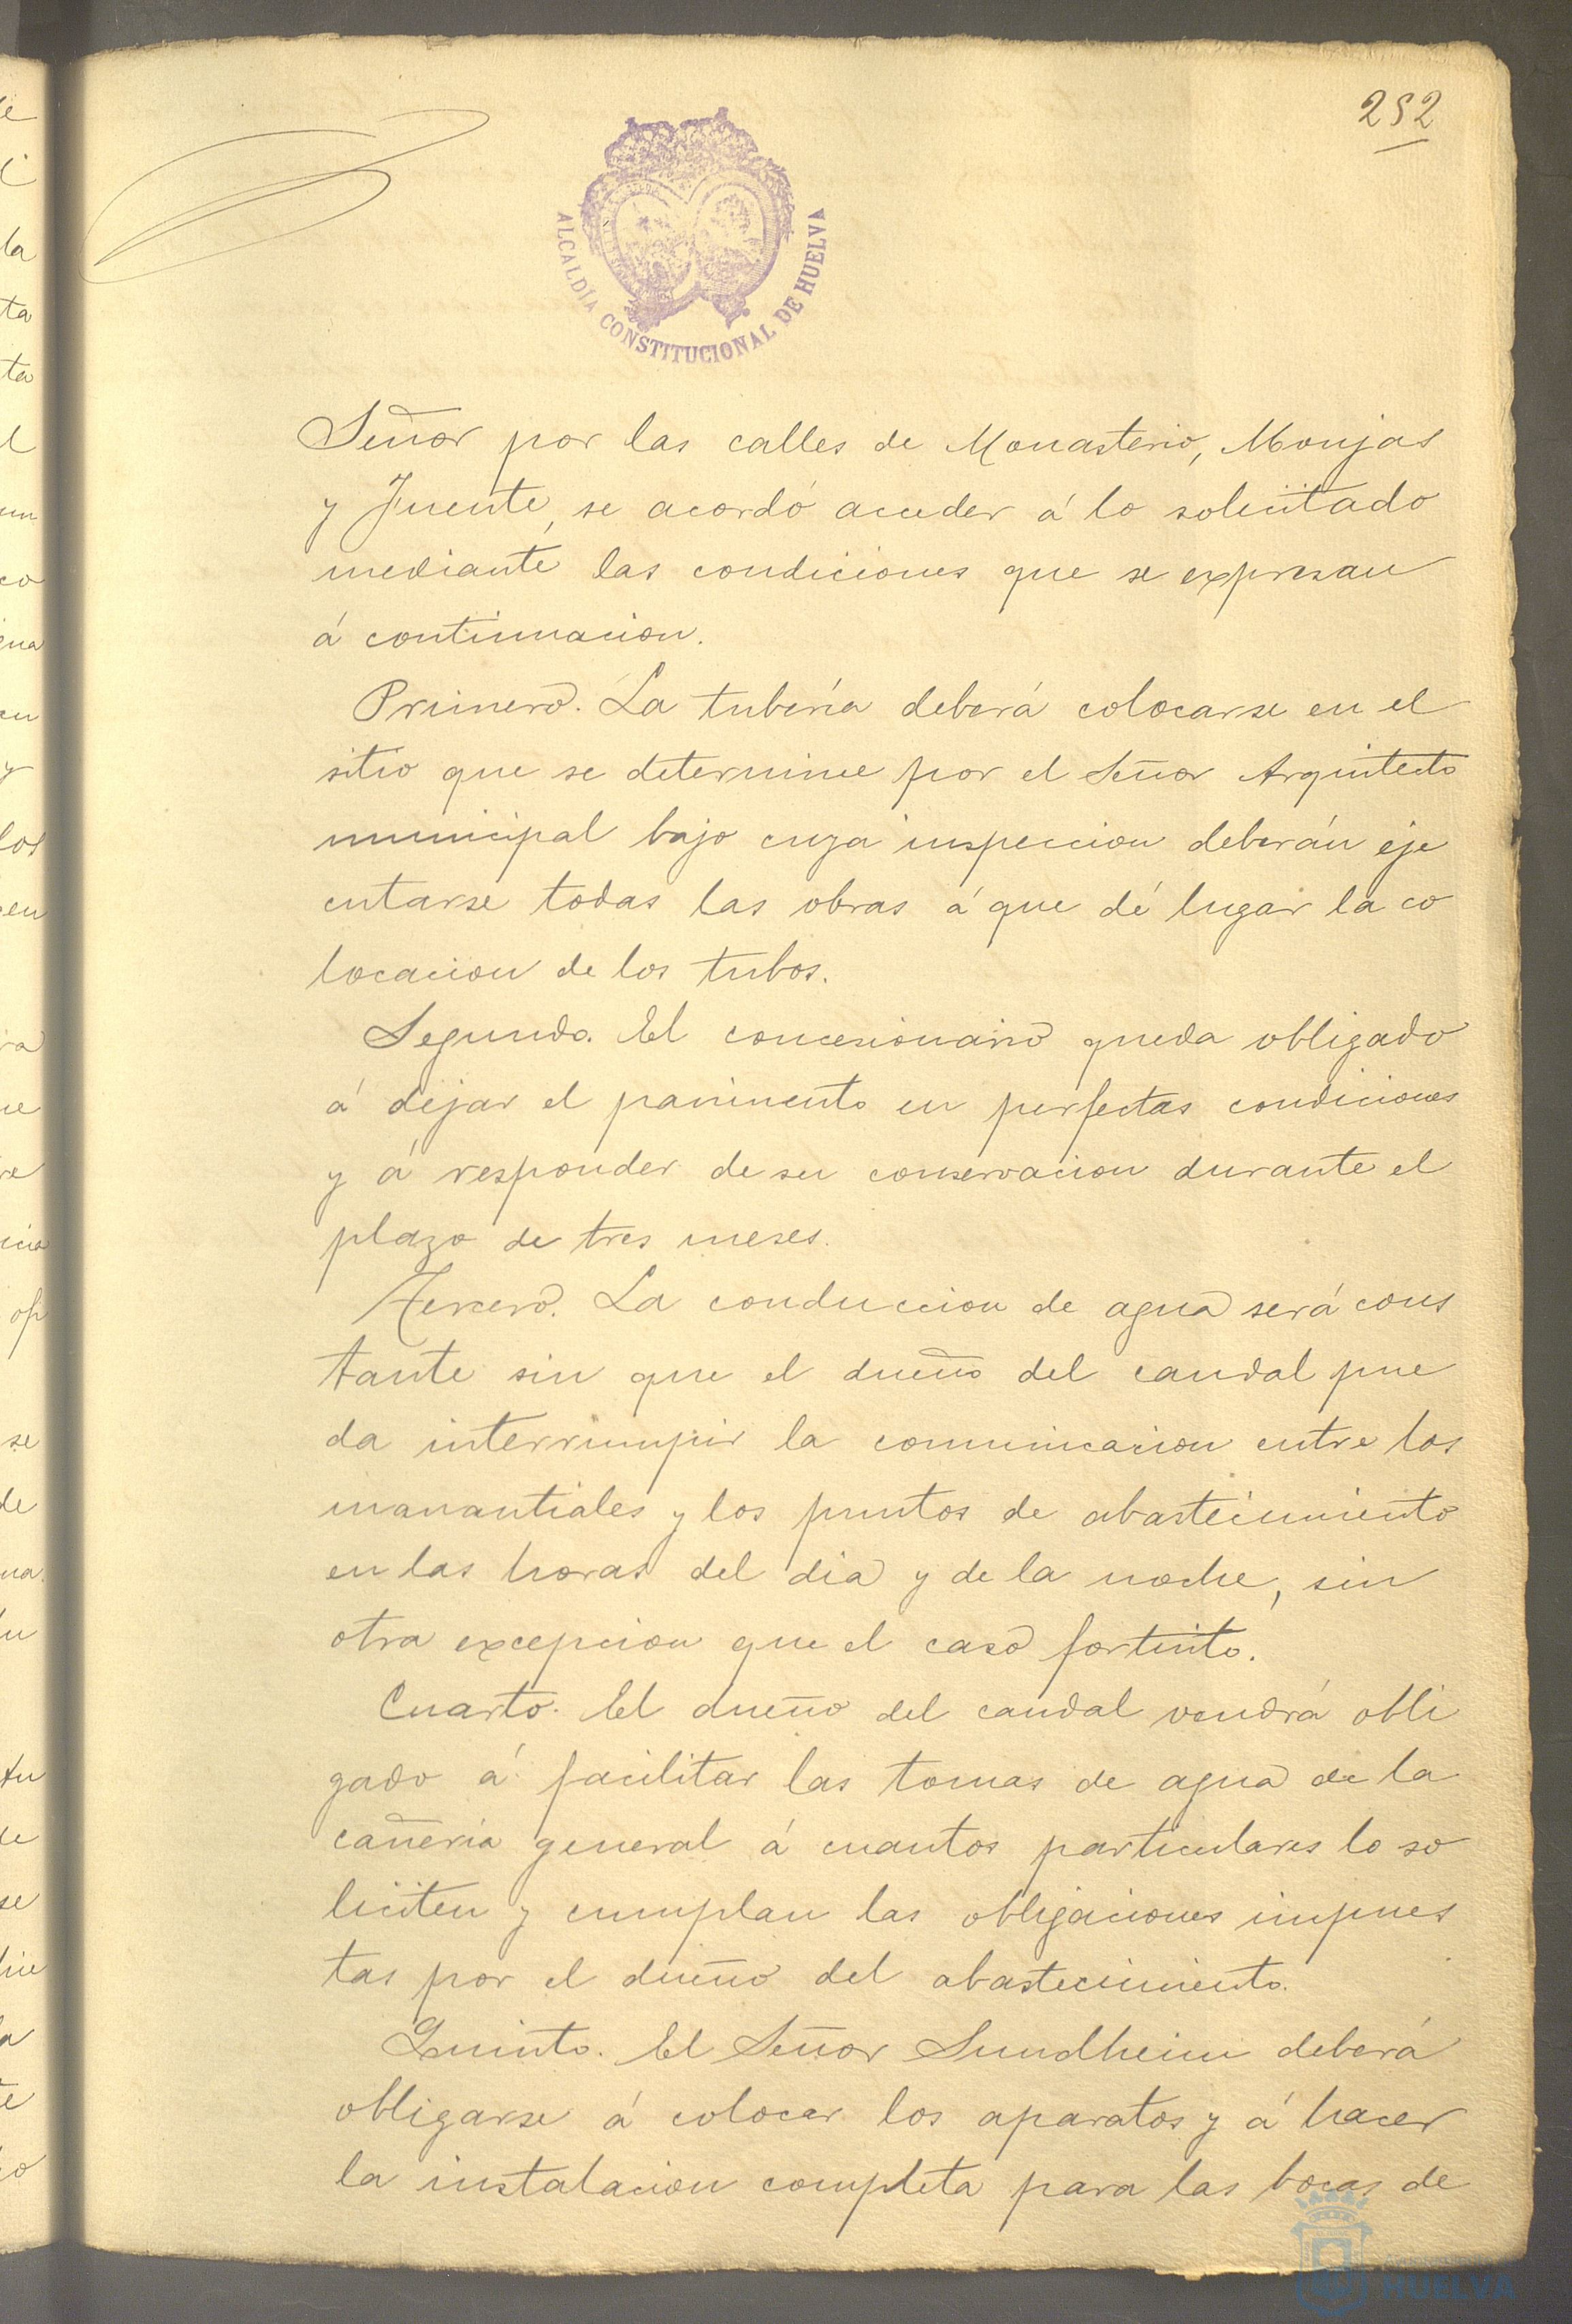 252
ALCALDÍA CONSTITUCIONAL DE HUELVA
Señor por las calles de Monasterio, Monjas
y Fuente, se acordó acceder á lo solicitado
mediante las condiciones que se expresan
á continuacion.
Primero. La tubería deberá colocarse en el
sitio que se determine por el Señor Arquitecto
municipal bajo cuya inspeccion deberán eje
cutarse todas las obras á que dé lugar la co
locacion de los tubos.
Segundo. El concesionario queda obligado
á dejar el pavimento en perfectas condiciones
y á responder de su conservacion durante el
plazo de tres meses.
Tercero. La conduccion de agua será cons
tante sin que el dueño del caudal pue
da interrumpir la comunicacion entre los
manantiales y los puntos de abastecimiento
en las horas del dia y de la noche, sin
otra excepcion que el caso fortuito.
Cuarto. El dueño del caudal vendrá obli
gado á facilitar las tomas de agua de la
cañeria general á cuantos particulares lo so
liciten y cumplan las obligaciones impues
tas por el dueño del abastecimiento.
Quinto. El Señor Sundheim deberá
obligarse á colocar los aparatos y á hacer
la instalacion completa para las bocas de
HUELVA